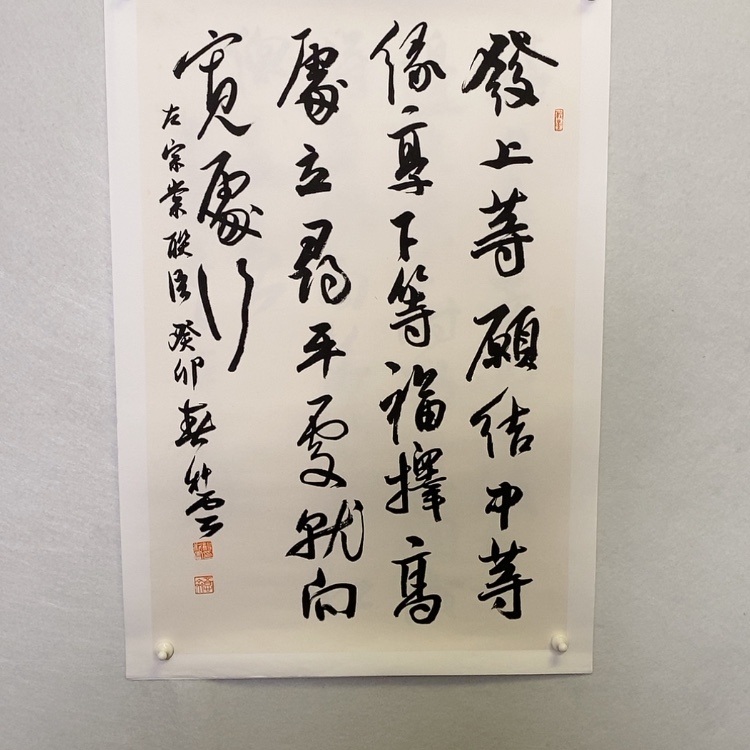 發上等願結中等
緣享下等福擇高
處立尋平處就向
寬處行
左宗棠聯語癸卯春